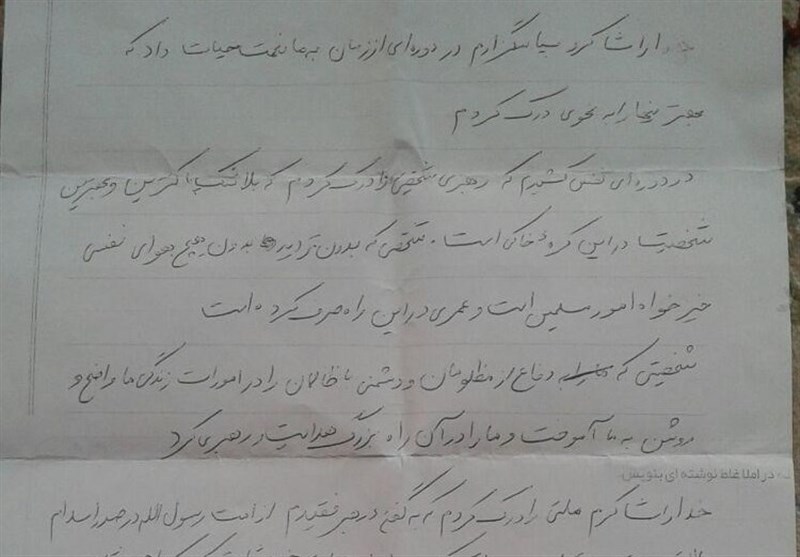 خدا را شاکرد سپاسگزارم در دوره ای از زمان به ما نعمت حیات داد که
را به نحوی درک کردم
در دوره ای نفس کشیدم که رهبری شخصی را درک کردم که بلاشک پاکترین و بهترین
شخصیتها در این کره خاکی است. شخصی که بدون تردید بدون هیچ هوای نفسی
خیرخواه امور مسلمین است و عمری در این راه صرف کرده است
شخصیتی که دفاع از مظلومان و دشمنی با ظالمان را در امورات زندگی ما واضح و
روشن به ما آموخت و ما را در آن راه بزرگ هدایت و رهبری کرد
در املا غلط نوشته ای بنویس.
خدا را شاکرم ملتی را درک کردم که به گفته رهبر فقیدم از امت رسول الله در صدر اسلام